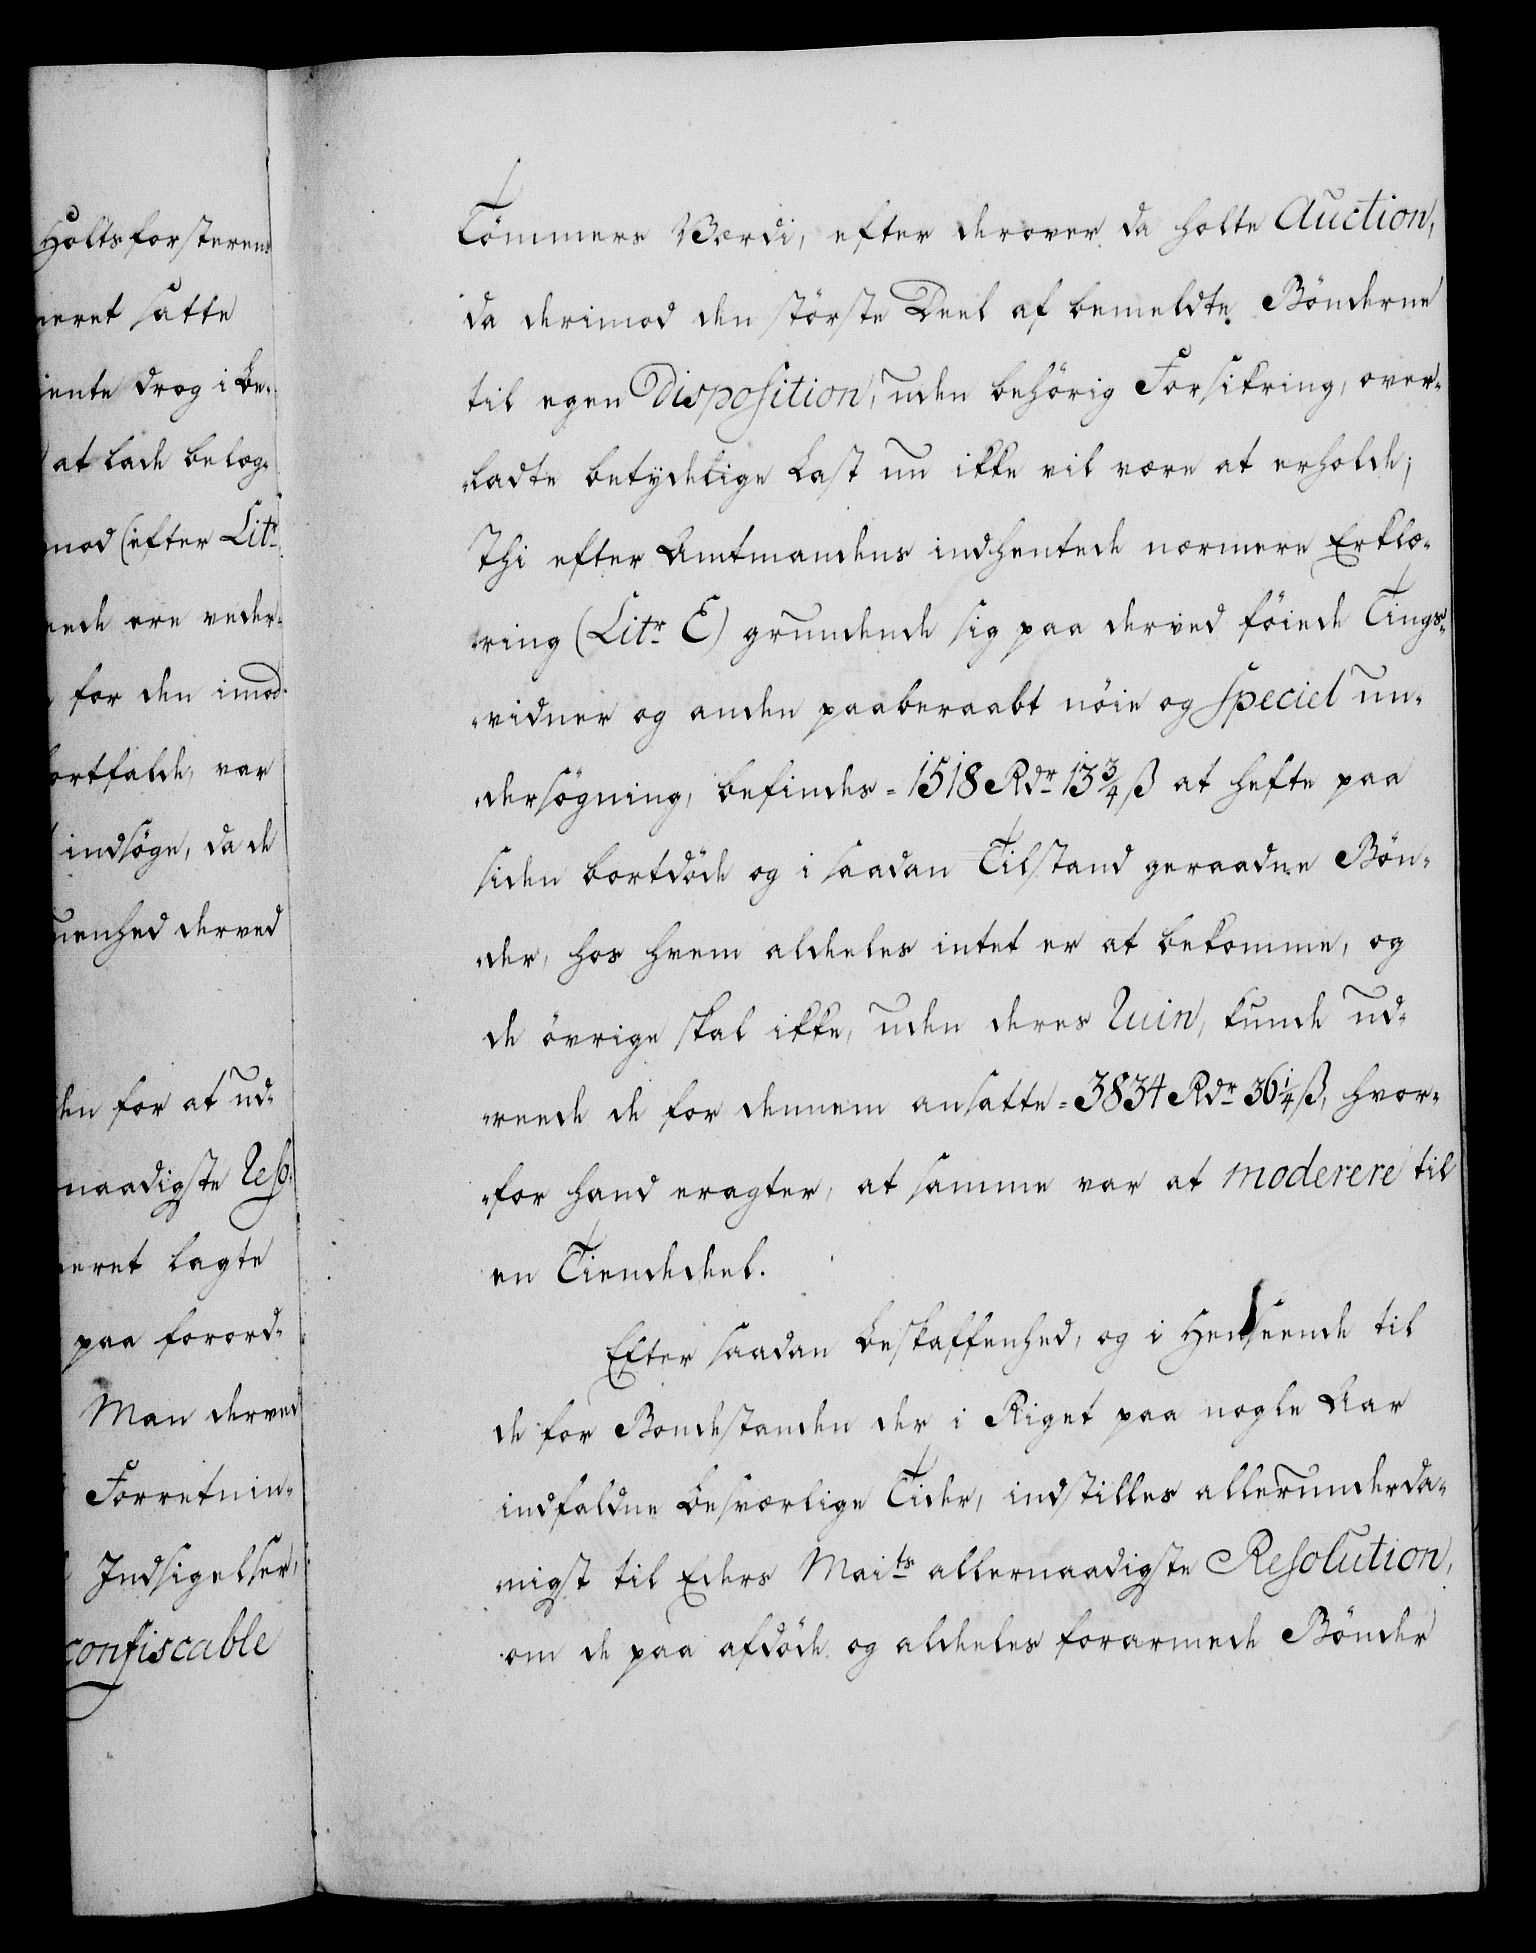 Holtsforsterens
neret satte
iente drog i Be-
at lade belæg-
mod (efter Litr
nede ere veder-
for den imod
ortfalde, var
indsøge, da de
uenhed derved
den for at ud-
naadigste Reso-
neret lagte
paa forord-
Man derved
Forretnin-
Indsigelser,
confiscable
Tömmers Værdi, efter derover da holte Auction,
da derimod den störste Deel af bemeldte Bönderne
til egen Disposition, uden behörig Forsikring, over-
-ladte betydelige Last nu ikke vil være at erholde;
Thi efter Amtmandens indhentede nærmere Erklæ-
-ring (Litr E) grundende sig paa derved föiede Tings-
-vidner og anden paaberaabt nöie og speciel un-
-dersögning, befindes = 1518 Rdr 13 3/4 ß at hefte paa
siden bortdöde og i saadan Tilstand geraadne Bön-
-der, hos hvem aldeles intet er at bekomme, og
de övrige skal ikke, uden deres Ruin, kunde ud-
-reede de for dennem ansatte = 3834 Rdr 36 1/4 ß, hvor-
-for hand eragter, at samme var at moderere til
en Tiendedeel.
Efter saadan Beskaffenhed, og i Henseende til
de for Bondestanden der i Riget paa nogle Aar
indfaldne besværlige Tider, indstilles allerunderda-
-nigst til Eders Maits allernaadigste Resolution,
om de paa afdöde og aldeles forarmede Bönder